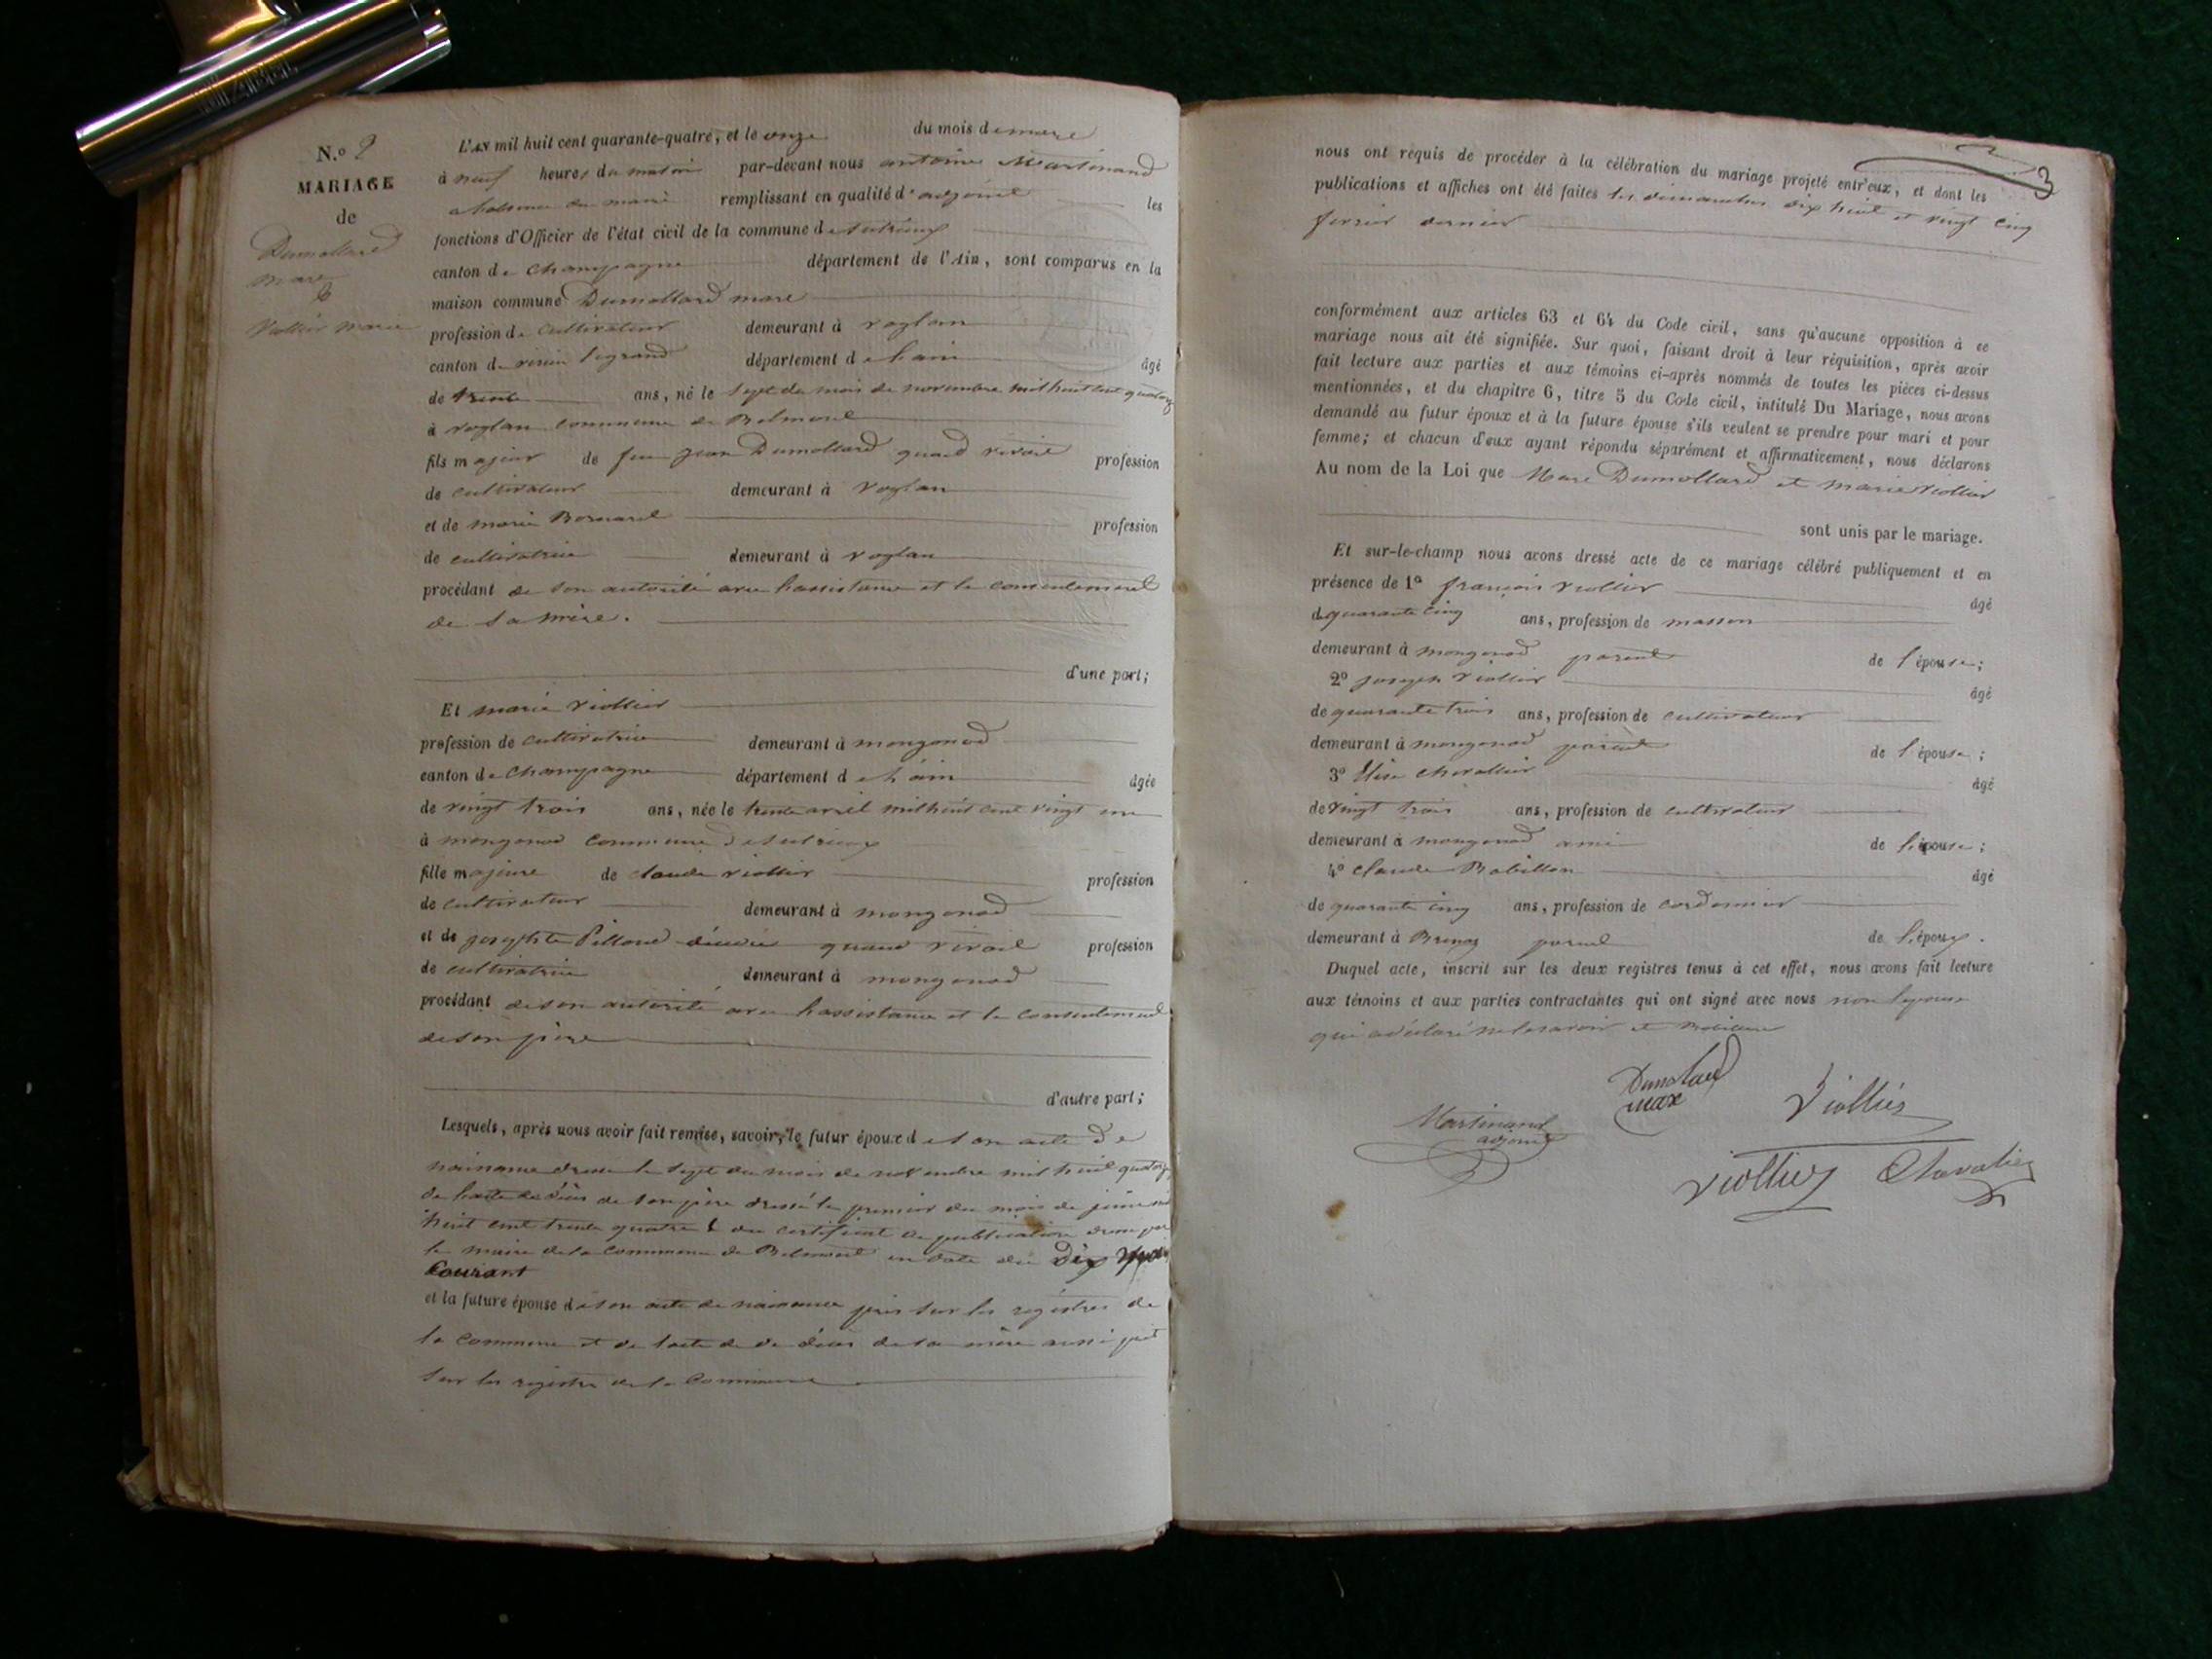 N.o 2
MARIAGE
de
Dumollard
marc
&
Viollier marie
L'AN mil huit cent quarante-quatre, et le onze du mois de mars
à neuf heures du matin par-devant nous antoine Martinand
absence du maire remplissant en qualité d'adjoint les
fonctions d'Officier de l'état civil de la commune de Sutrieux
canton de Champagne département de l'Ain, sont comparus en la
maison commune Dumollard marc
profession de cultivateur demeurant à voglan
canton de virieu legrand département de lain âgé
de trente ans, né le sept du mois de novembre mil huit cent quatorze
à voglan commune de Belmont
fils majeur de feu jean Dumollard quand vivait profession
de cultivateur demeurant à voglan
et de marie Bornarel profession
de cultivatrice demeurant à voglan
procédant de son autorité avec lassistance et le consentement
de sa mère.
d'une part;
Et marie viollier
profession de cultivatrice demeurant à mongonod
canton de Champagne département de lain âgée
de vingt trois ans, née le trente avril mil huit cent vingt un
à mongonod commune de sutrieux
fille majeure de claude viollier profession
de cultivateur demeurant à mongonod
et de josephte Pilloud décédée quand vivait profession
de cultivatrice demeurant à mongonod
procédant de son autorité avec lassistance et le consentement
de son père
d'autre part;
Lesquels, après nous avoir fait remise, savoir, le futur époux de son acte de
naissance dressé le sept du mois de novembre mil huit quatorze
de lacte de décès de son père dressé le premier du mois de juin mil
huit cent trente quatre & du certificat de publication par
le maire de la commune de Belmont en date du Dix
Courant
et la future épouse de son acte de naissance pris sur les registres de
la commune et de lacte de de décès de sa mère aussi pris
sur les registre de la commune
3
nous ont requis de procéder à la célébration du mariage projeté entr'eux, et dont les
publications et affiches ont été faites les dimanches dix huit et vingt cinq
fevrier dernier
conformément aux articles 63 et 64 du Code civil, sans qu'aucune opposition à ce
mariage nous ait été signifiée. Sur quoi, faisant droit à leur réquisition, après avoir
fait lecture aux parties et aux témoins ci-après nommés de toutes les pièces ci-dessus
mentionnées, et du chapitre 6, titre 5 du Code civil, intitulé Du Mariage, nous avons
demandé au futur époux et à la future épouse s'ils veulent se prendre pour mari et pour
femme; et chacun d'eux ayant répondu séparément et affirmativement, nous déclarons
Au nom de la Loi que Marc Dumollard et marie viollier
sont unis par le mariage.
Et sur-le-champ nous avons dressé acte de ce mariage célébré publiquement et en
présence de 1º françois viollier âgé
de quarante cinq ans, profession de masson
demeurant à mongonod parent de l'épouse;
2º joseph viollier âgé
de quarante trois ans, profession de cultivateur
demeurant à mongonod parent de l'épouse;
3º chevallier âgé
de vingt trois ans, profession de cultivateur
demeurant à mongonod ami de l'épouse;
4º claude Bobillon âgé
de quarante cinq ans, profession de cordonnier
demeurant à Brenaz parent de l'époux.
Duquel acte, inscrit sur les deux registres tenus à cet effet, nous avons fait lecture
aux témoins et aux parties contractantes qui ont signé avec nous non lepouse
qui a déclaré ne le savoir et
Dumolard
marc
Viollier
Martinand
adjoint
Viollier
Chavalier